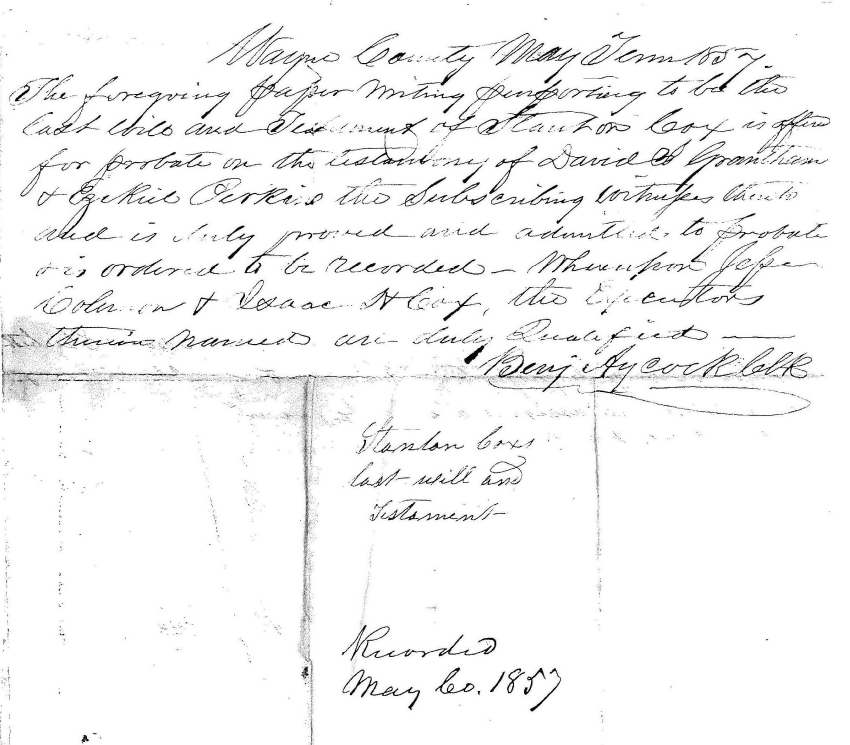 Wayne County May Term 1857.
The foregoing paper writing purporting to be the
last Will and Testament of Stanton Cox is offerd
for probate on the testimony of David S Grantham
& Ezekiel Perkins the Subscribing witnesses thereto
and is duly proved and admitted to probate
& is ordered to be recorded – Whereupon Jesse
Coleman & Isaac H Cox, the Executors
therein named are duly Qualified —
Benj Aycock Clk
Stanton Coxs
last will and
Testament
Recorded
May Co. 1857